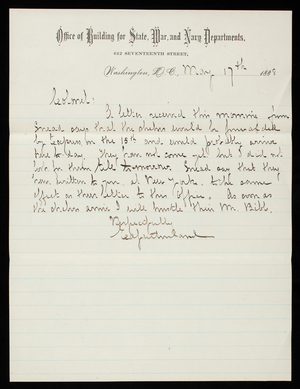 Office of Building for State, War, and Navy Departments,
SEVENTEENTH STREET,
Washington, D.C., May 17th 1889
Colonel:
A letter received this morning from
Snead says that the shelves would be forwarded
by Express on the 15th and would probably arrive
here to-day. They have not come yet but I did not
look for them till tomorrow. Snead says that they
have written to you, at New York, to the same
effect as their letter to this Office. As soon as
the shelves arrive I will hustle them
Respectfully